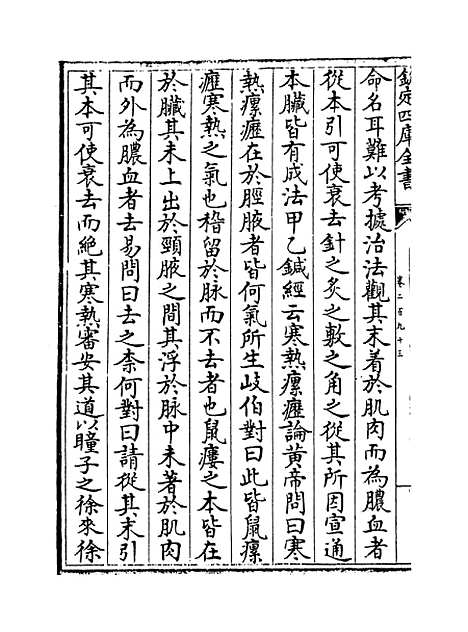 欽定四庫全書
卷二百九十三
命名耳難以考據治法觀其末着於肌肉而為膿血者
從本引可使衰去針之炙之敷之角之從其所因宣通
本臟皆有成法甲乙鍼經云寒熱瘰癧論黃帝問曰寒
熱瘰癧在於脛腋者皆何氣所生岐伯對曰此皆鼠瘰
癧寒熱之氣也稽留於脉而不去者也鼠瘻之本皆在
於臟其末上出於頸腋之間其浮於脉中未著於肌肉
而外為膿血者去易問曰去之柰何對曰請從其末引
其本可使衰去而絶其寒熱審安其道以瞳子之徐來徐